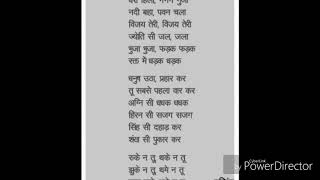 धरा हिला, गगन गुंजा
नदी बहा, पवन चला
विजय तेरी, विजय तेरी
ज्योति सी जल, जला
भुजा भुजा, फड़क फड़क
रक्त में धड़क धड़क
धनुष उठा, प्रहार कर
तू सबसे पहला वार कर
अग्नि सी धधक धधक
हिरन सी सजग सजग
सिंह सी दहाड़ कर
शंख सी पुकार कर
रुके न तू, थके न तू
झुके न तू, थमे न तू
Made with
PowerDirector